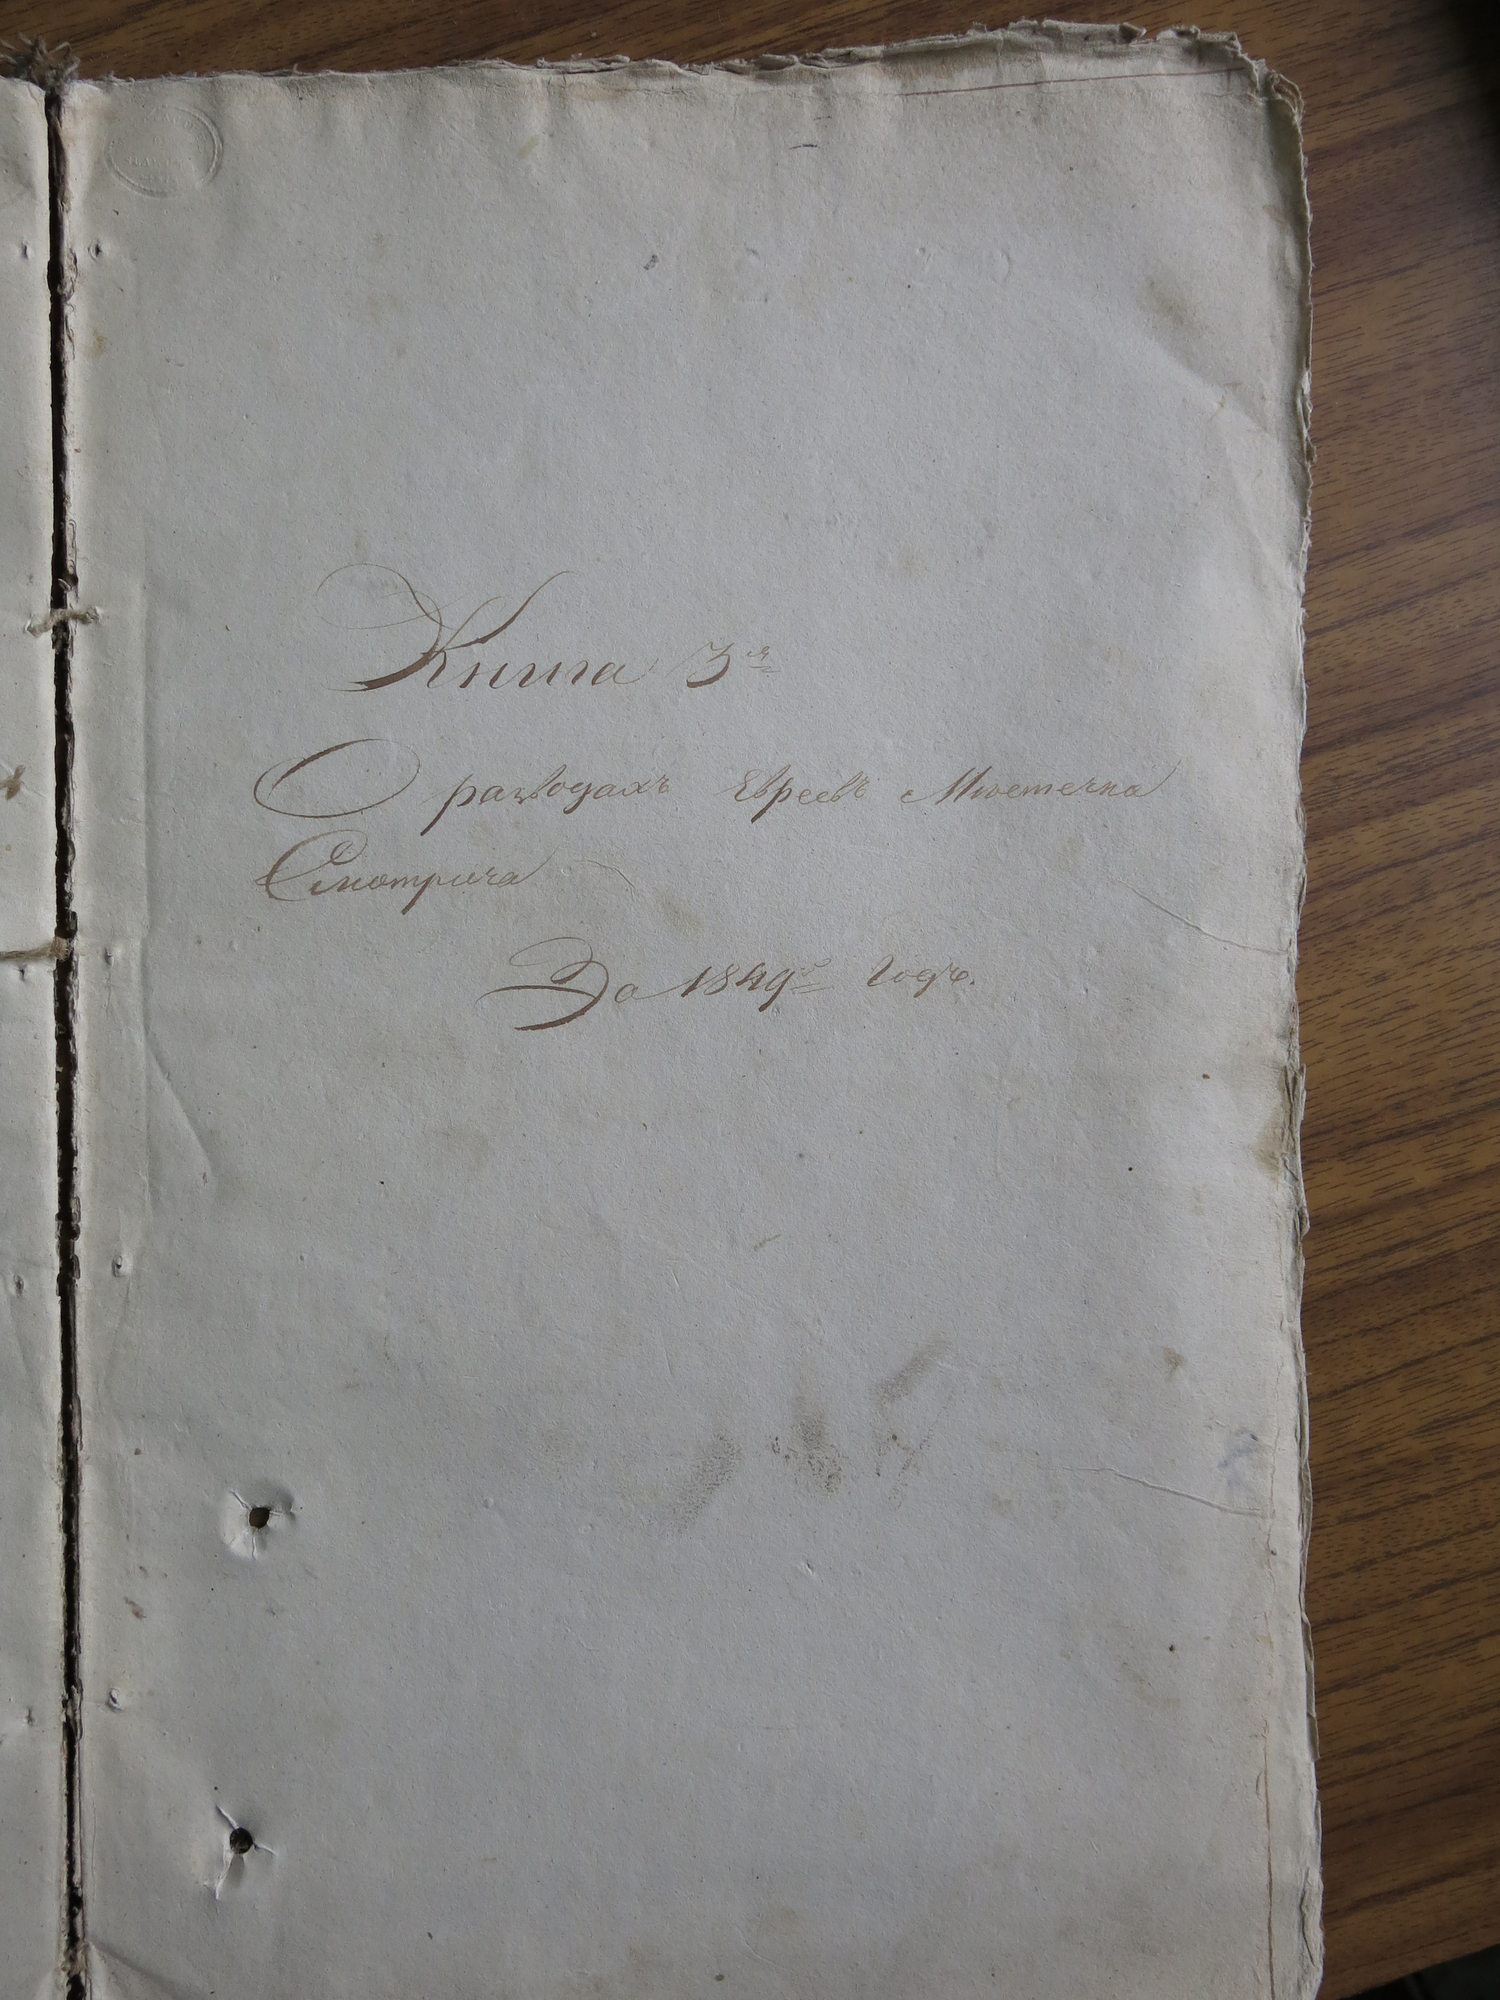 Книга 3я
О разводахъ Евреевъ Мѣстечка
Смотрича
За 1849й Годъ.